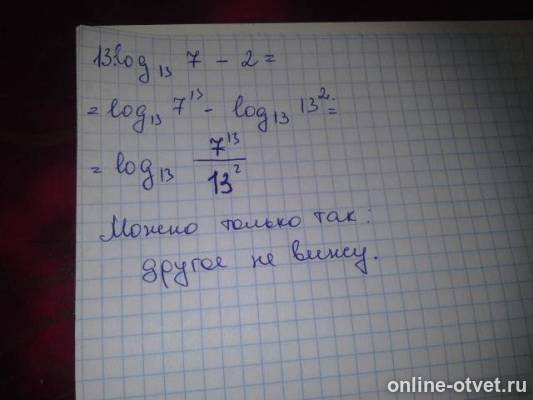 13log₁₃ 7 - 2 =
= log₁₃ 7¹³ - log₁₃ 13² =
= log₁₃ 7¹³/13²
Можно только так:
другое не вижу.
online-otvet.ru